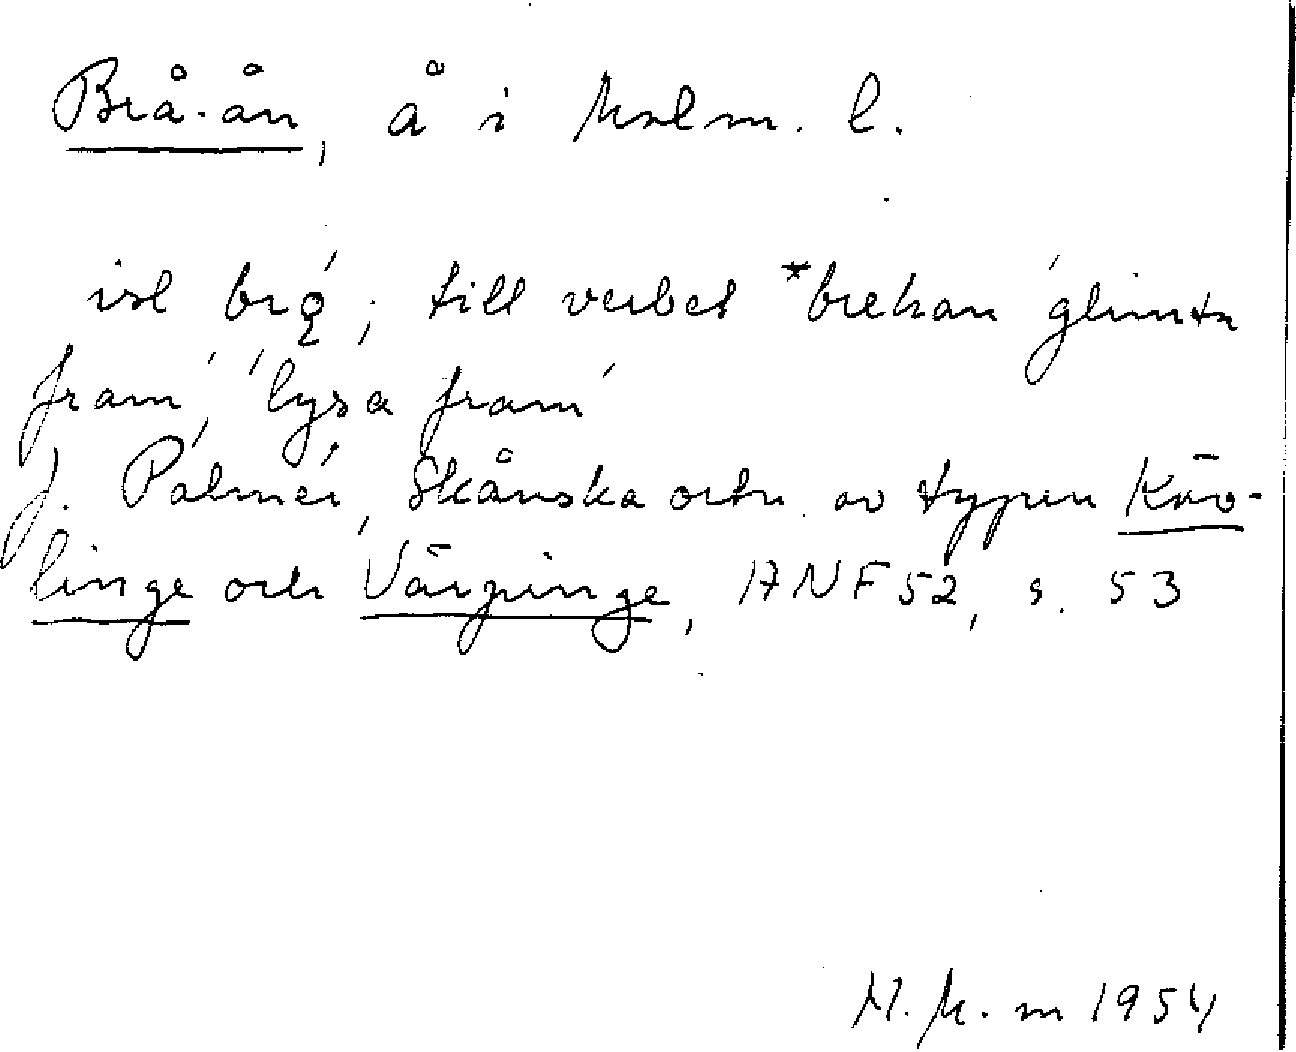 Brå-ån, å i Malm. l.
isl brǫ́; till verbet *brehan 'glimta
fram', 'lysa fram'
J. Palmér, Skånska ortn. av typen Käv-
linge och Värpinge, ANF 52, s. 53
M. M. m 1954